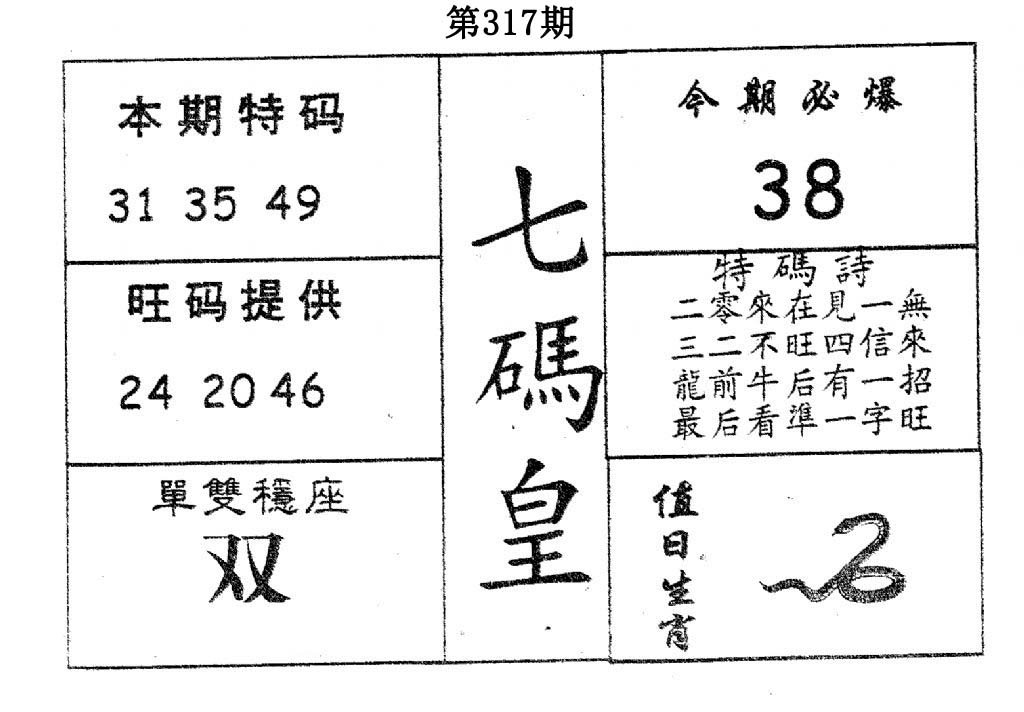 第317期
本期特码
31 35 49
旺码提供
24 20 46
單雙穩座
双
七碼皇
今期必爆
38
特碼詩
二零來在見一無
三二不旺四信來
龍前牛后有一招
最后看準一字旺
值日生肖